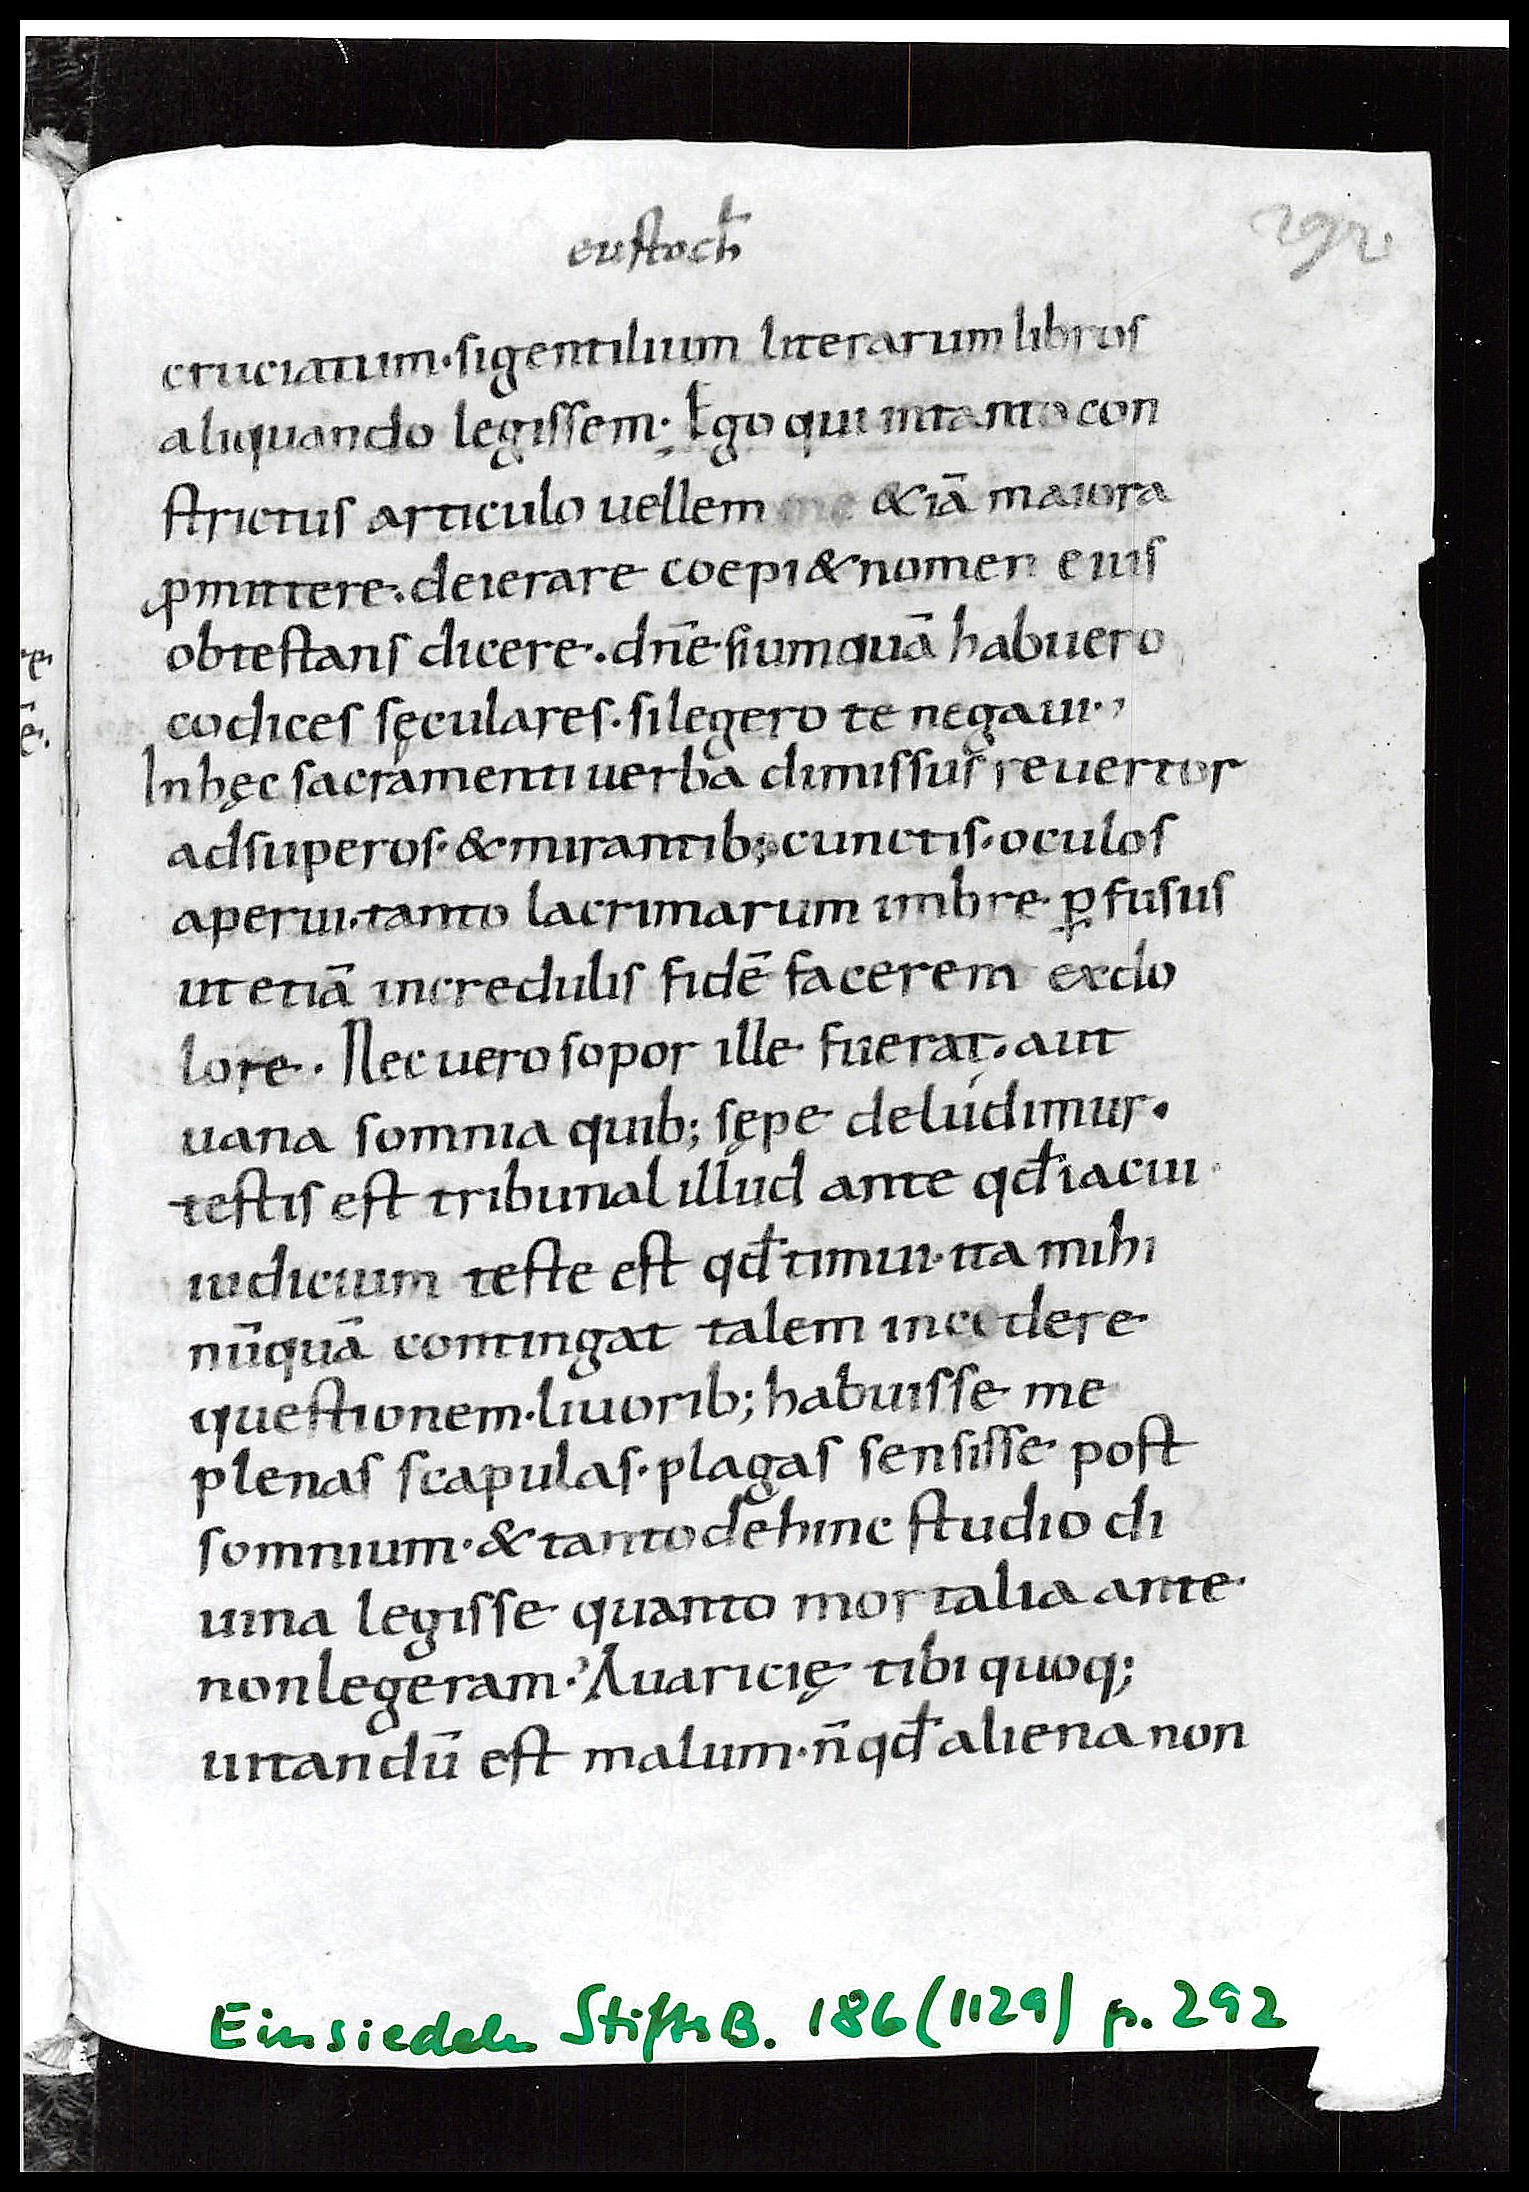 eustoch̄
292.
cruciatum. sigentilium literarum libros
aliquando legissem. Ego qui intanto con
strictus articulo uellem me &iā maiora
ꝓmittere. deierare coepi & nomen eius
obtestans dicere. dn̄e si umquā habuero
codices sęculares. si legero te negaui.
In hęc sacramenti uerba dimissus reuertor
adsuperos. & mirantib; cunctis. oculos
aperui. tanto lacrimarum imbre ꝑfusus
ut etiā incredulis fidē facerem exdo
lore. Nec uero sopor ille fuerat. aut
uana somnia quib; sępe deludimur.
testis est tribunal illud ante qđ iacui
iudicium teste est qđ timui. ita mihi
nūquā contingat talem incidere
questionem. liuorib; habuisse me
plenas scapulas. plagas sensisse post
somnium. & tanto dehinc studio di
uina legisse quanto mortalia ante
non legeram. Auaricię tibi quoq;
uitandū est malum. n̄ qđ aliena non
Einsiedeln StiftsB. 186 (1129) p. 292